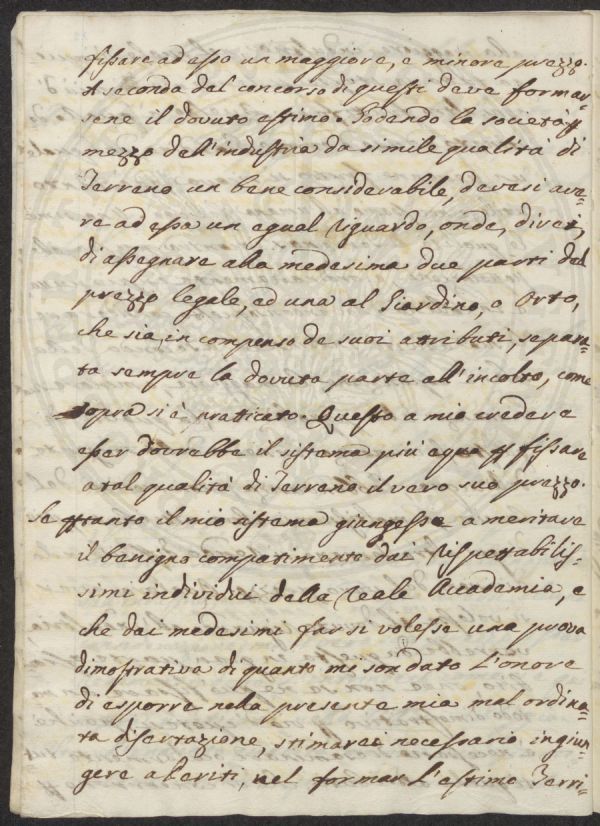 fissare ad essa un maggiore, e minore prezzo.
A seconda del concorso di questi deve formar=
sene il dovuto estimo. Godendo la società p
mezzo dell'industria da simile qualità di
Terreno un bene considerabile, devesi ave=
re ad essa un egual riguardo, onde, direi,
di assegnare alla medesima due parti del
prezzo legale, ed una al Giardino, o Orto,
che sia, in compenso de suoi attributi, separa=
ta sempre la dovuta parte all'incolto, come
sopra si è praticato. Questo a mio credere
esser dovrebbe il sistema più equo p fissare
a tal qualità di Terreno il vero suo prezzo.
Se ptanto il mio sistema giungesse a meritare
il benigno compatimento dai Rispettabilis=
simi individui della reale Accademia, e
che dai medesimi far si volesse una prova
dimostrativa di quanto mi son dato l'onore
di esporre nella presente mia mal ordina=
ta dissertazione, stimarei necessario ingiun=
gere a Periti, nel formar l'estimo Terri=